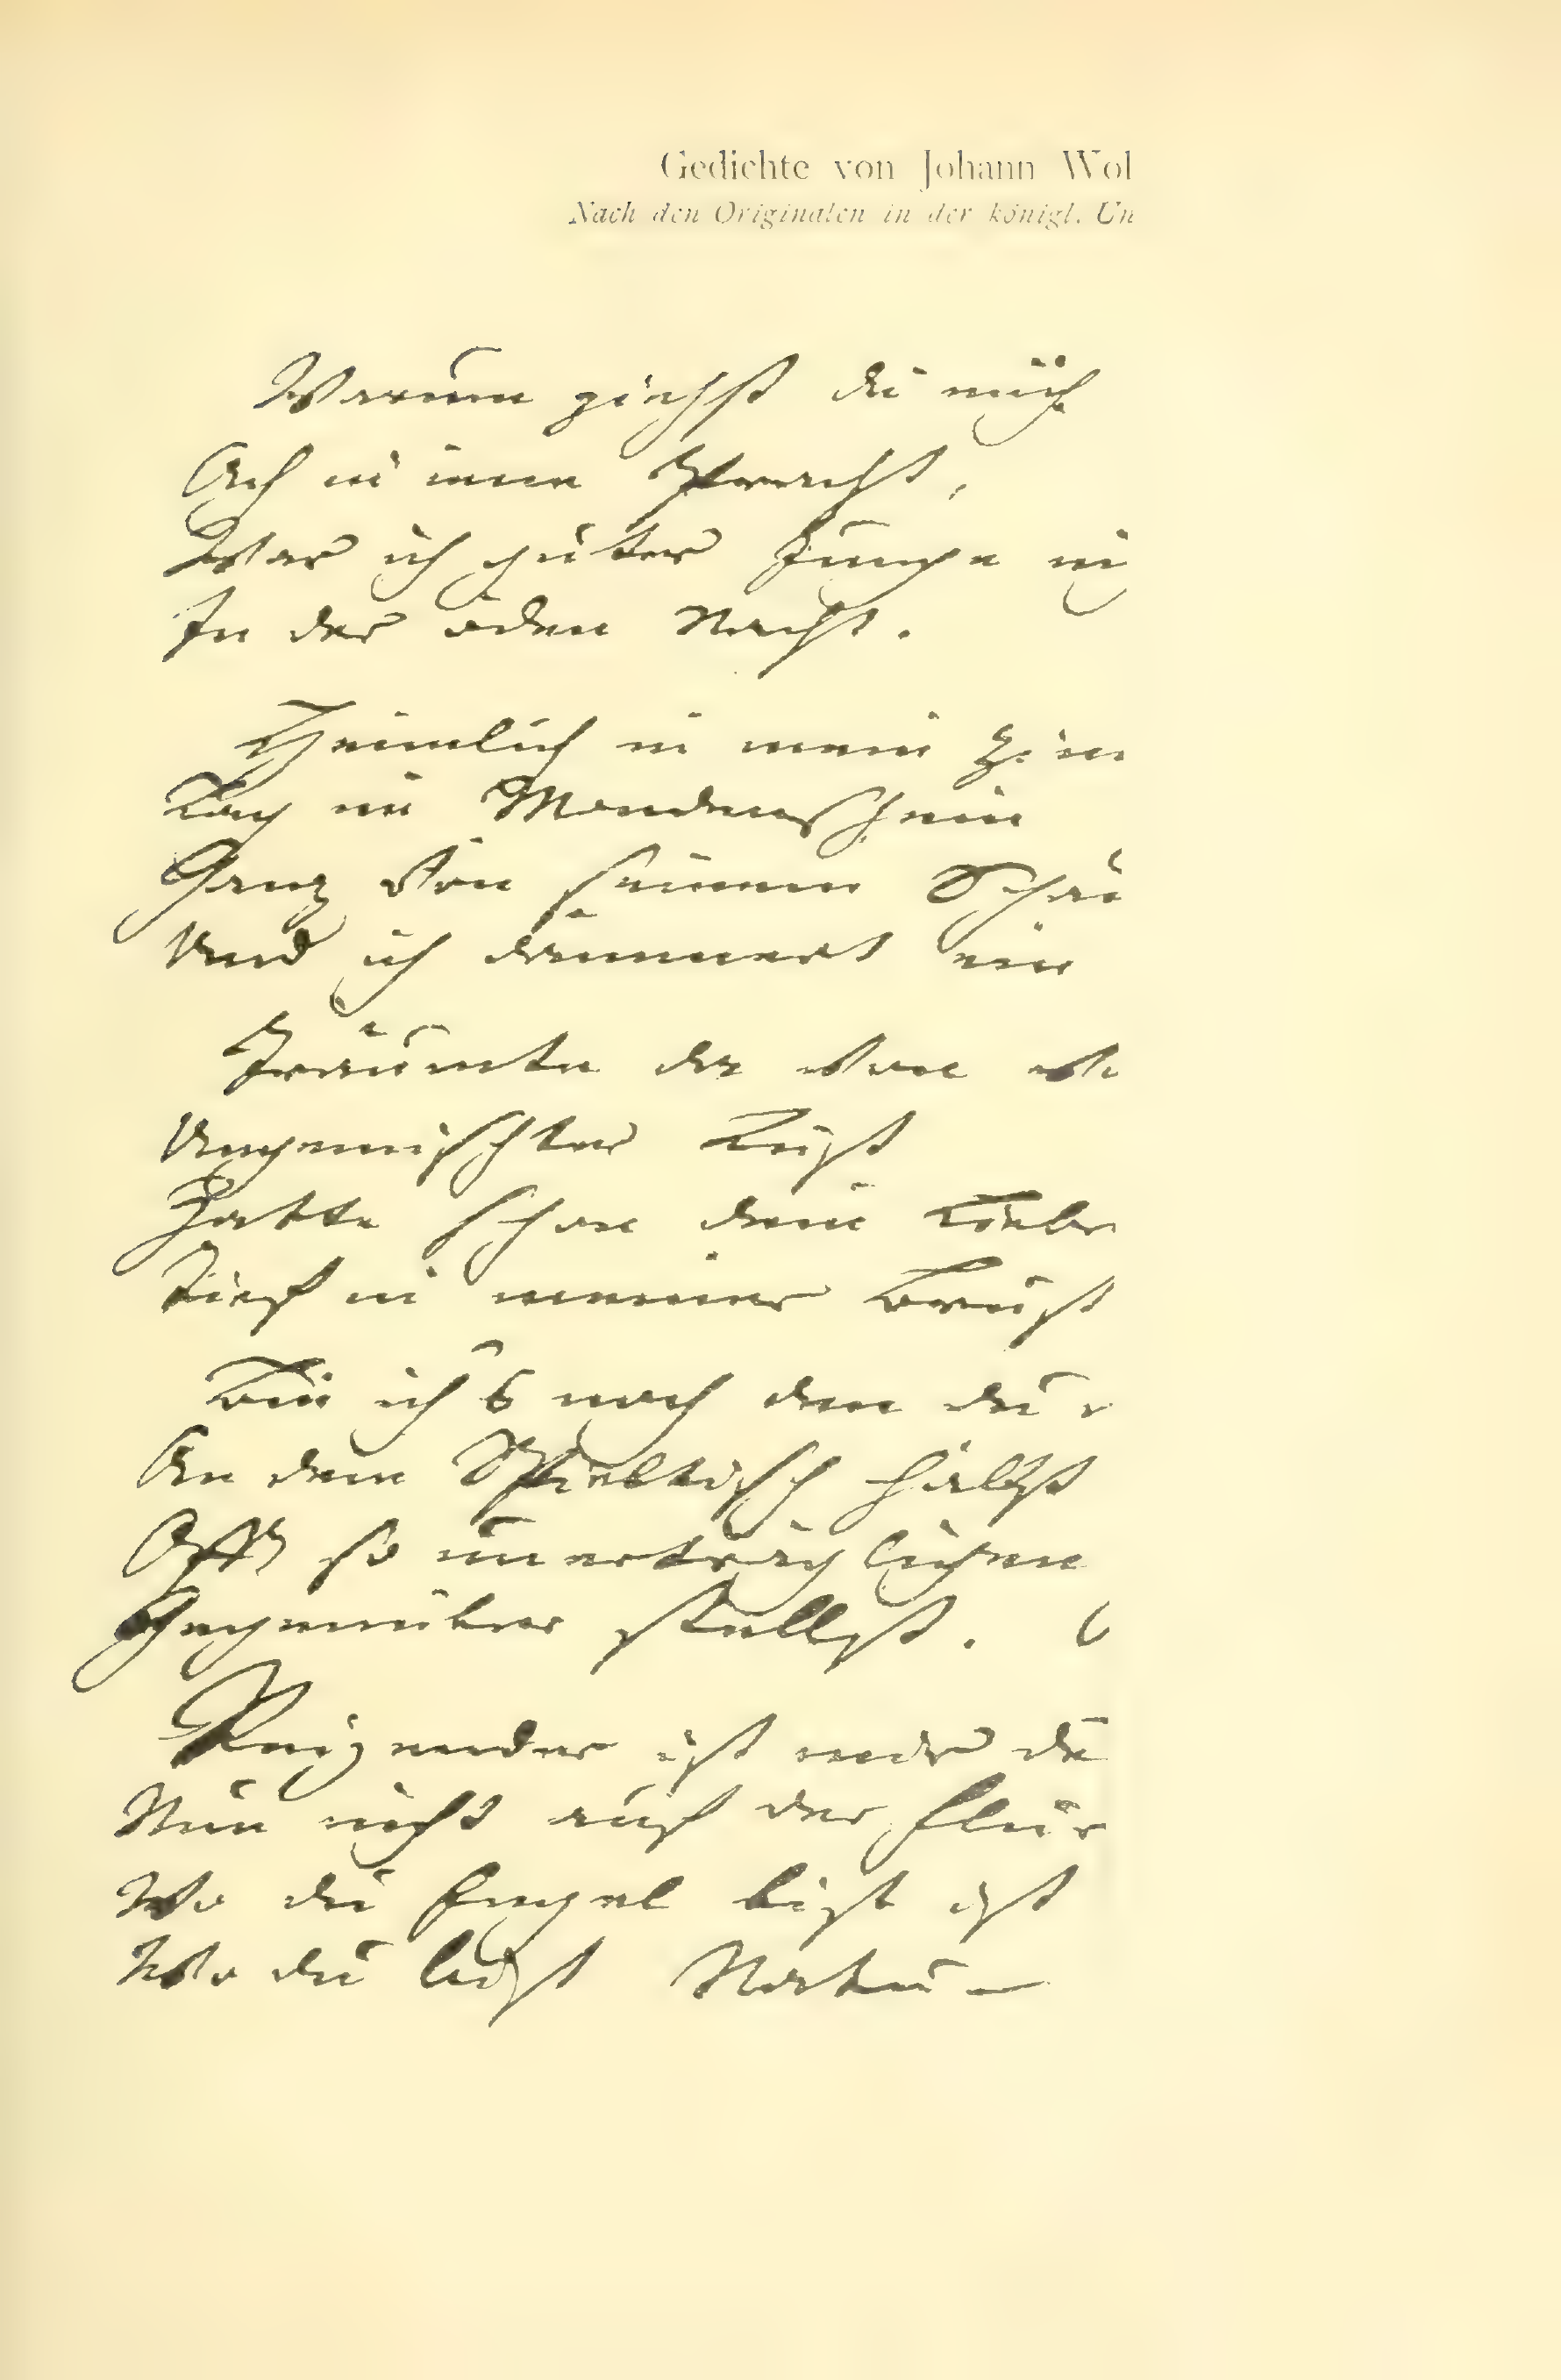 Gedichte von Johann Wol
Nach den Originalen in der königl. Un
Warum ziehst du mich
Ach in iene Pracht,
War ich guter Junge ni
In der öden Nacht.
Heimlich in mein Zim
Lag im Mondenschein
Ganz von seinem Schau
Und ich dämmert ein
Träumte da von
Ungemischter Lust
Hatte schon dein Liebe
Tief in meiner Brust
Bin ich's noch den du
An dem Spieltisch hältst
Offt so unerträglichen
Gegenüber stellst.
Reizender ist mir de
Nun nicht auf der Flur
Wo du Engel bist ist
Wo du bist Natur